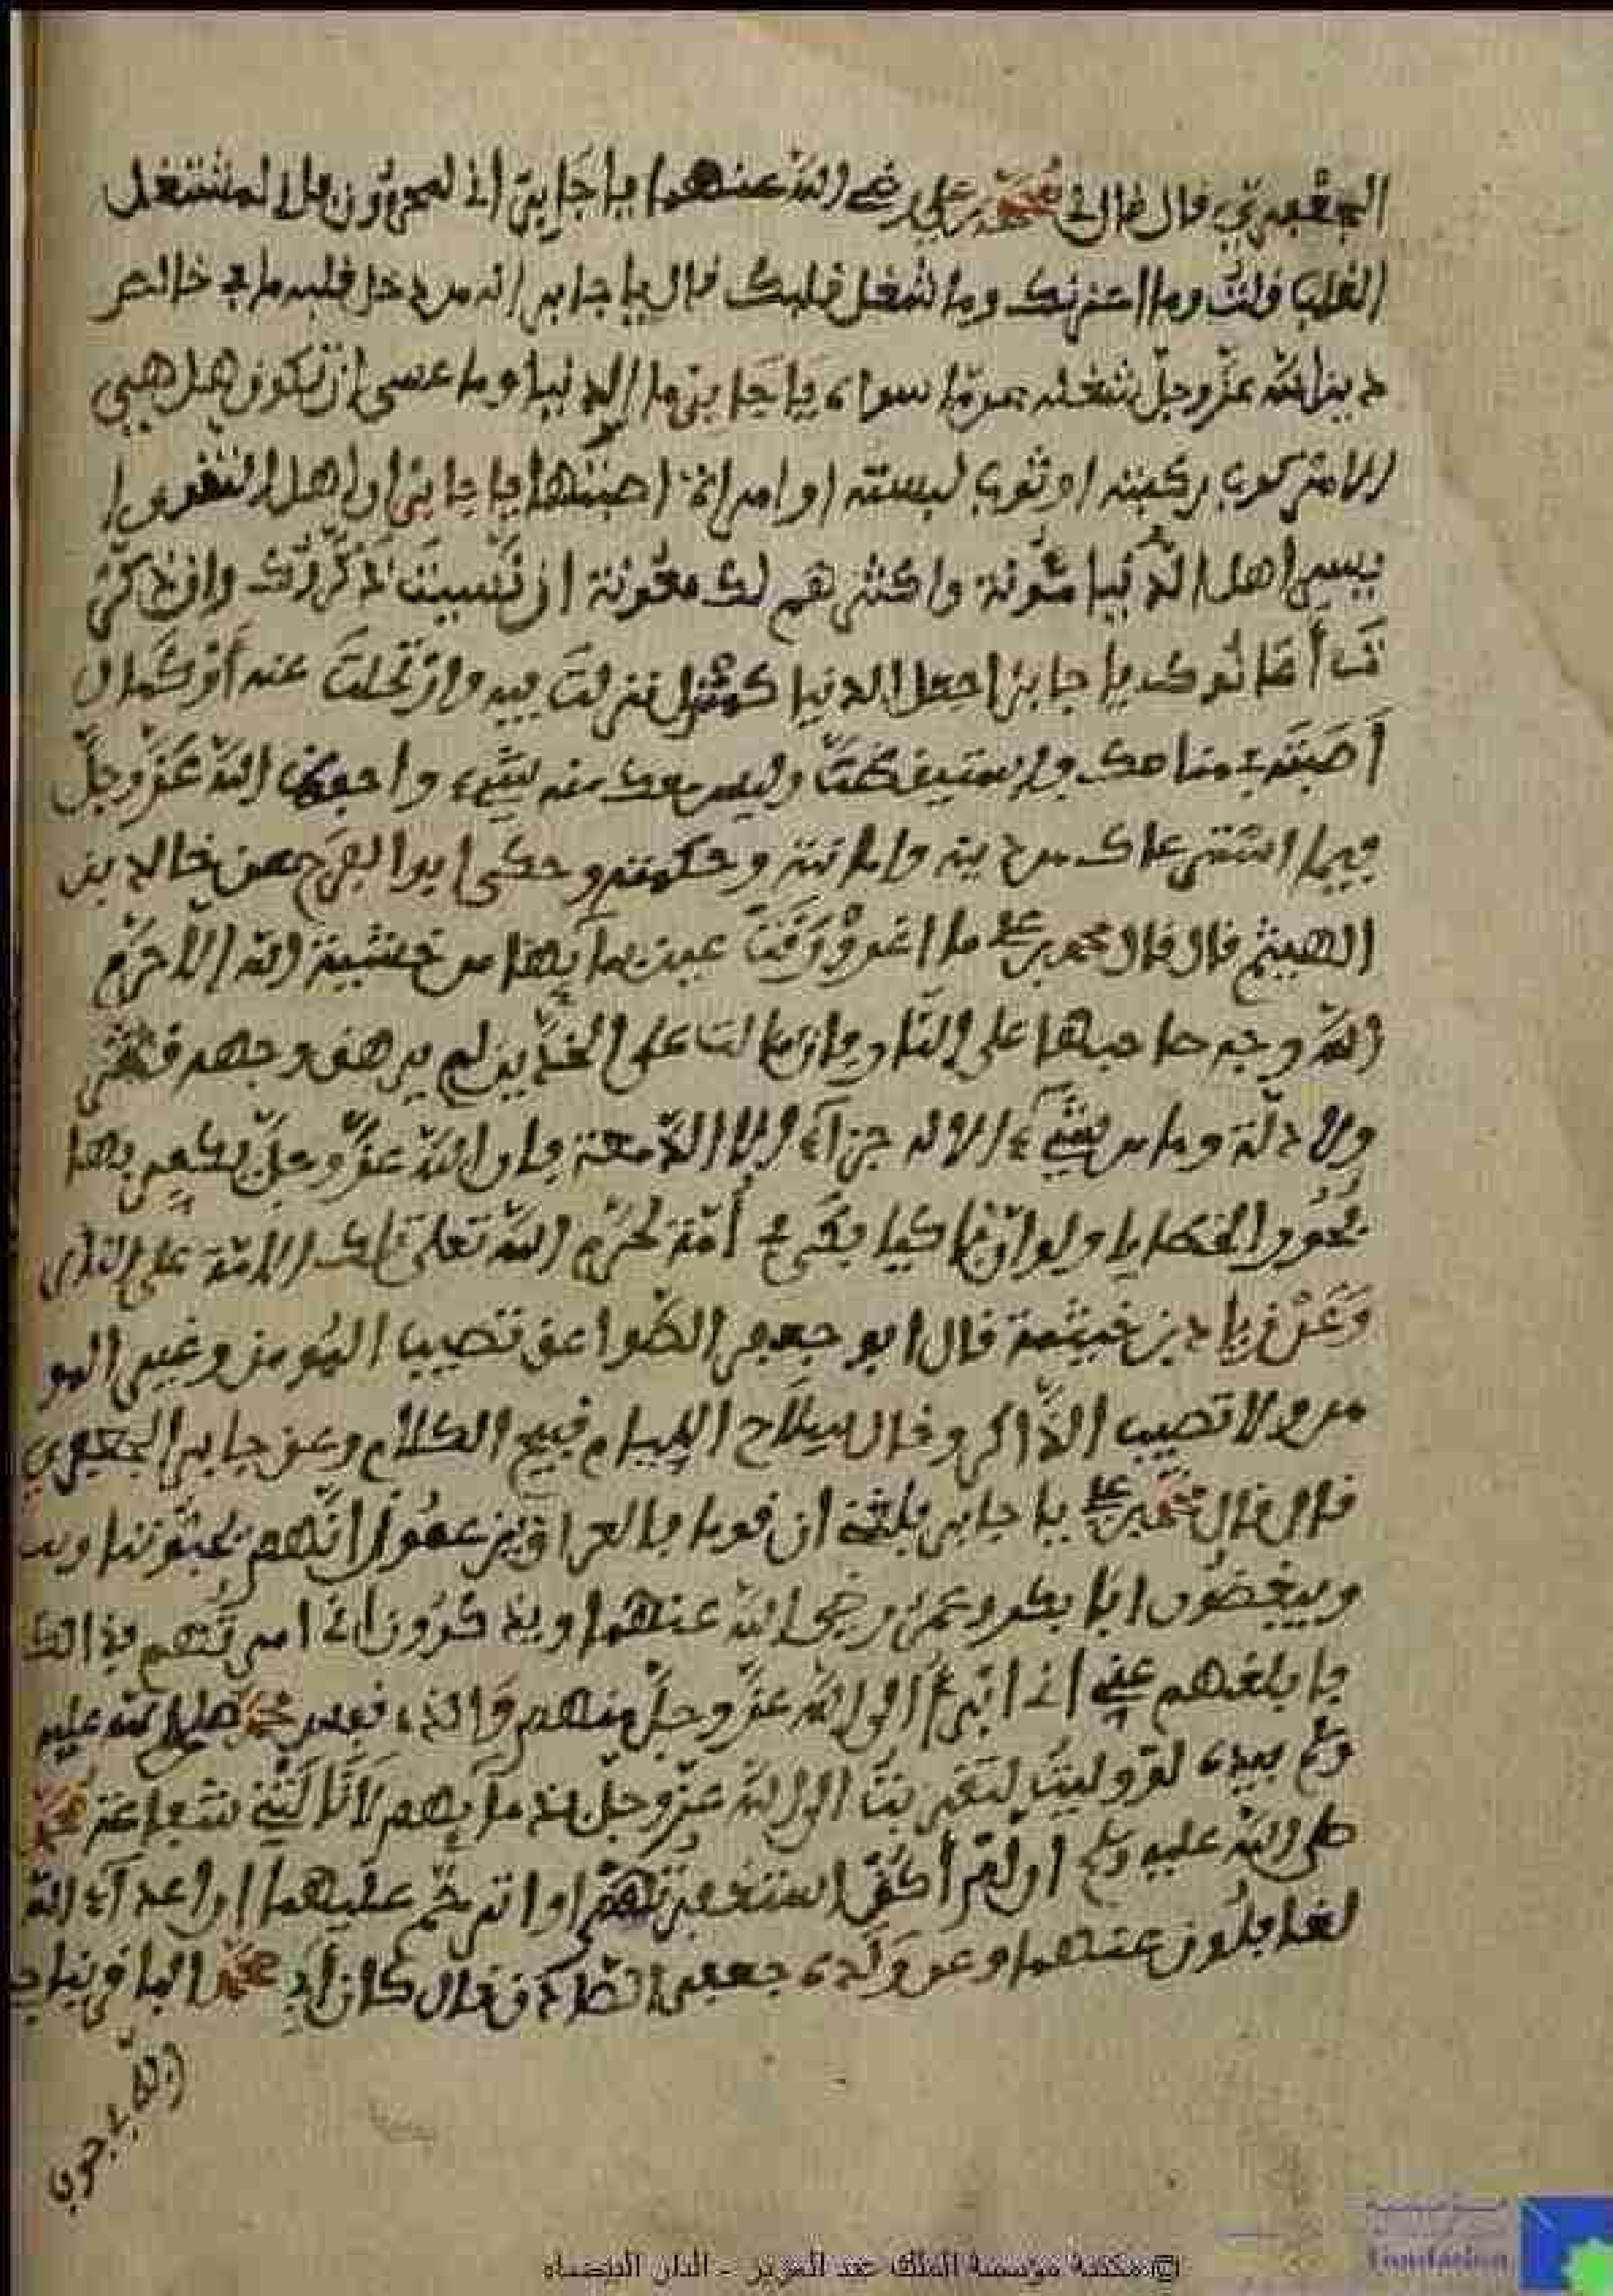 الجعفري قال قال لي محمد بن علي رضي الله عنهما يا جابر اني لمحزون واني لمشتغل
القلب قلت وما احزنك وما شغل قلبك قال يا جابر انه من دخل قلبه ما في خالص
دين الله عز وجل شغله عن ما سواه يا جابر ما الدنيا وما عسى ان تكون هل هي
الا مركوب ركبته او ثوب لبسته او امراة اصبتها يا جابر ان اهل التقوى ا
يسر اهل الدنيا مئونة واكثرهم لك معونة ان نسيت ذكروك وان ذكر
ت أعانوك يا جابر اجعل الدنيا كمنزل نزلت به وارتحلت عنه أو كمال
أصبته في منامك واستيقظت وليس معك منه شيء واحفظ الله عز وجل
فيما استرعاك من دينه وامانته وحكمته وحكى ابو الفرج عن خالد بن
الهيثم قال قال محمد بن علي ما اغرورقت عين بمآيها من خشية الله الا حرم
الله وجه صاحبها على النار وان سالت على الخدين لم يرهق وجهه قتر
ولا ذلة وما من شيء الا له جزاء الا الدمعة فان الله عز وجل يكفر بها
بحور الخطايا ولو ان باكيا بكى في أمة لحرم الله تعلى تلك الامة على النار
وعن زياد بن خيثمة قال ابو جعفر الصواعق تصيب المومن وغير المو
من ولا تصيب الذاكر وقال سلاح الليام قبيح الكلام وعن جابر الجعفري
قال قال محمد بن علي يا جابر بلغني ان قوما بالعراق يزعمون انهم يحبوننا
ويبغضون ابا بكر وعمر رضي الله عنهما ويذكرون اني امرتهم بذالك
فابلغهم عني اني ابرأ الى الله عز وجل منهم والذي نفس محمد صلى الله عليه
وسلم بيده لو وليت لتقربت الى الله عز وجل بدمآيهم لا نالتني شفاعة محمد
صلى الله عليه وسلم ان لم أكن استغفر لهما واترحم عليهما ان اعدآء الله
لغافلون عنهما وعن ولده جعفر الصادق قال كان أبي محمد الباقر يناجي
الله في جوف
© مكتبة مؤسسة الملك عبد العزيز - الدار البيضاء
Foundation